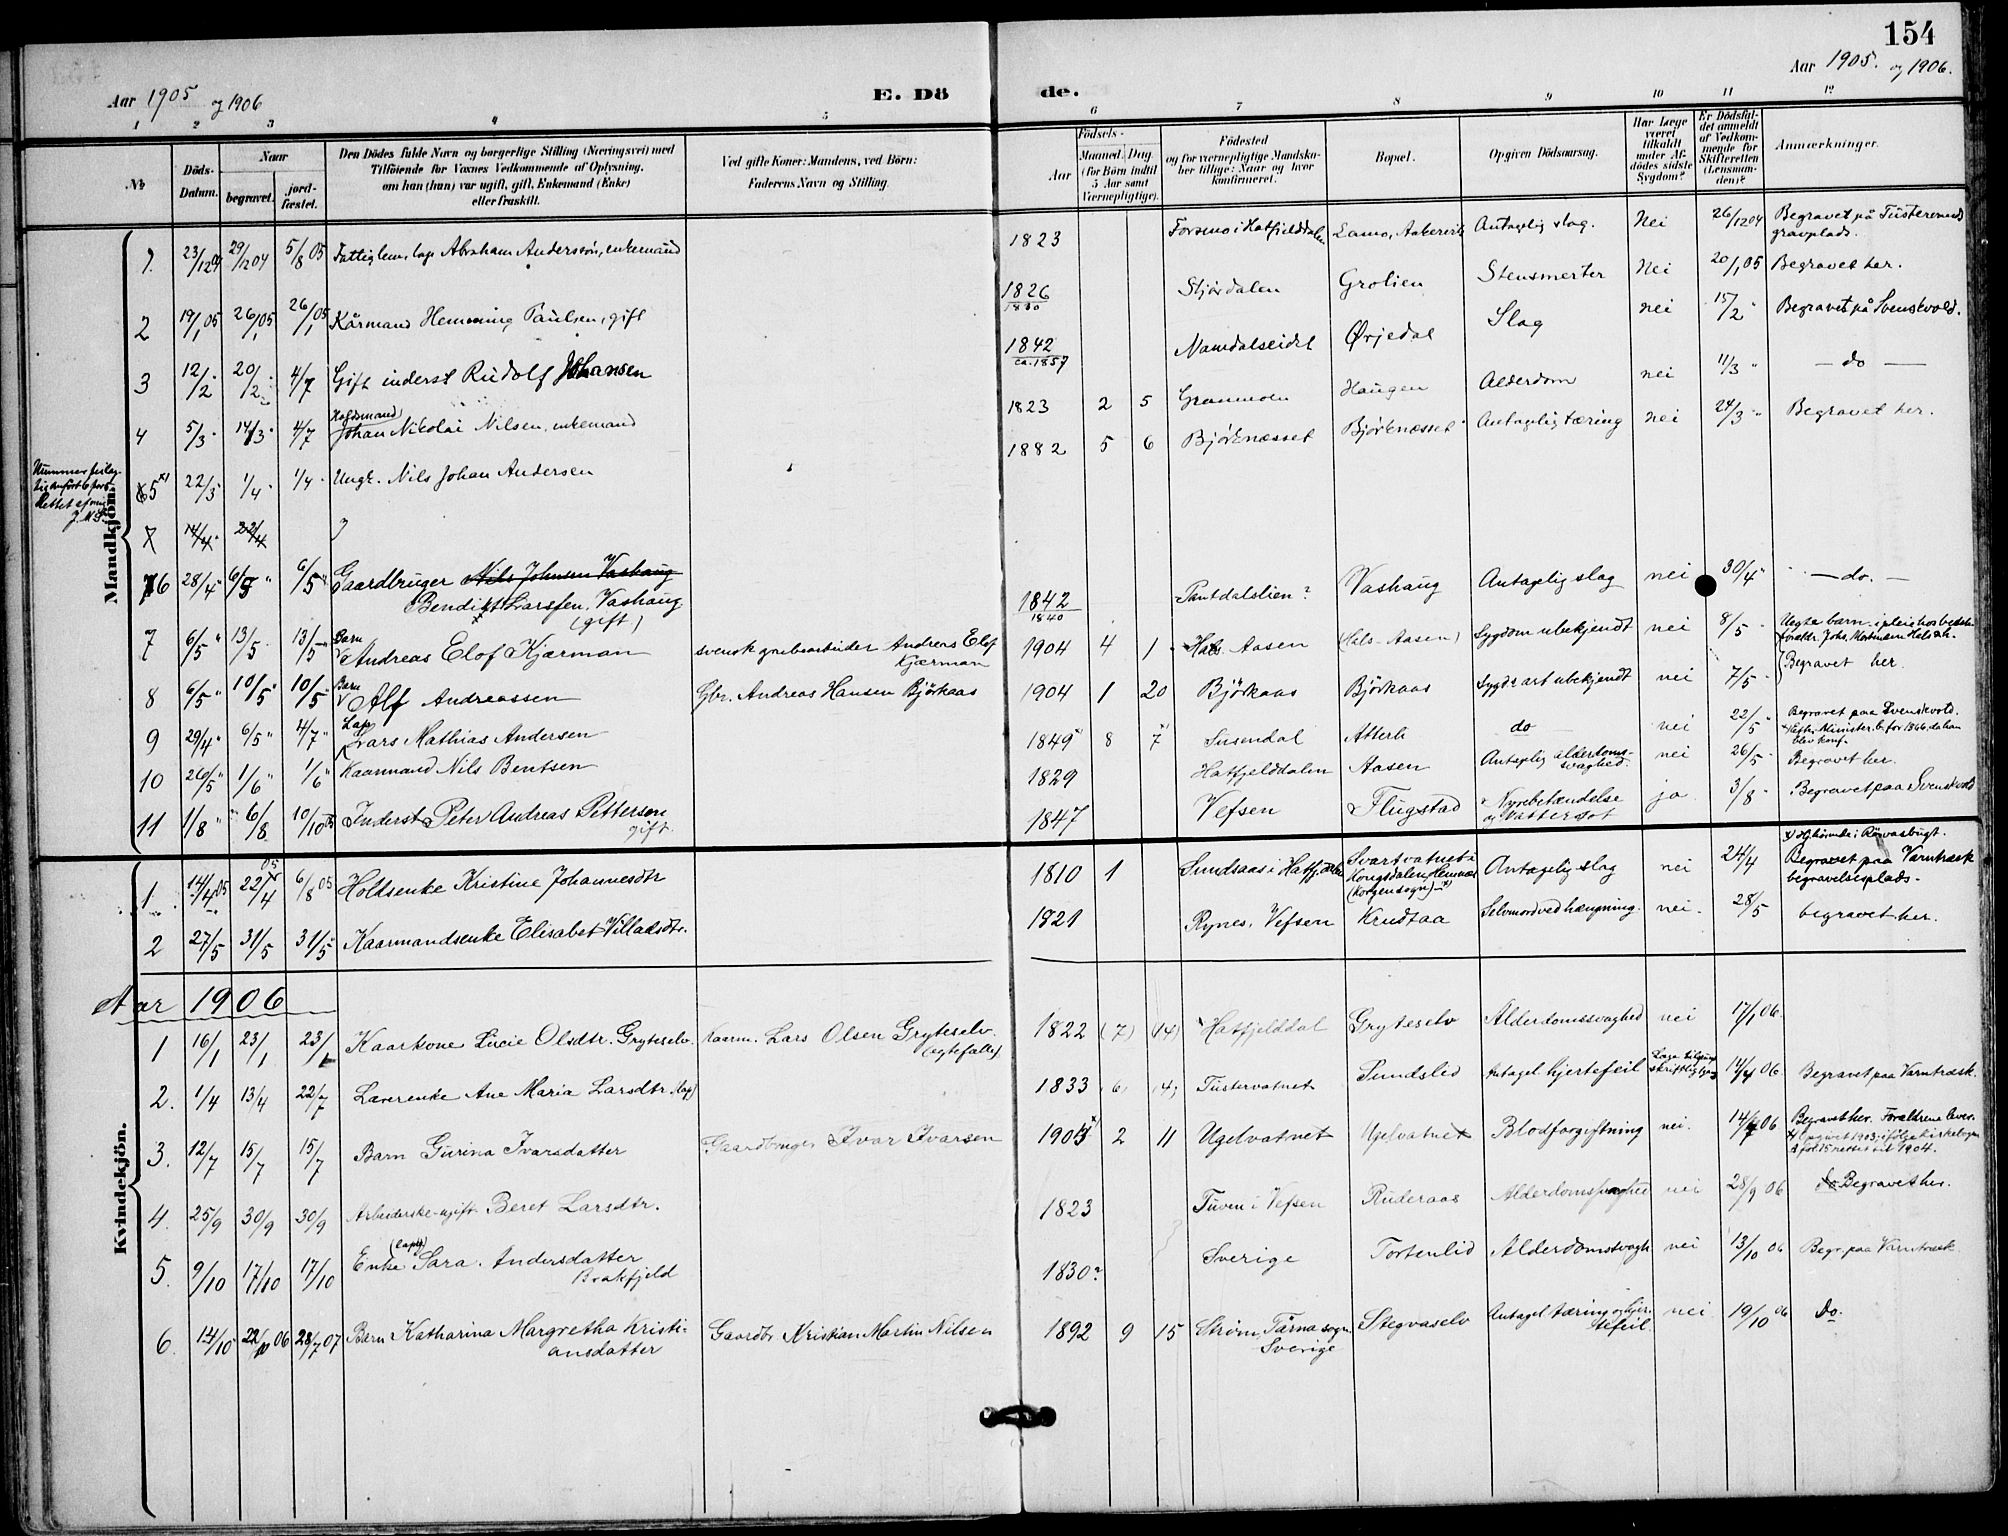 154
Aar 1905 og 1906
E. Dö
de.
Aar 1905. og 1906.
1 2 3 4 5 6 7 8 9 10 11 12
No
Döds-
Datum.
Naar
begravet.
jord-
fæstet.
Den Dödes fulde Navn og borgerlige Stilling (Næringsvei) med
Tilföiende for Voxnes Vedkommende af Oplysning,
om han (hun) var ugift, gift, Enkemand (Enke)
eller fraskilt.
Ved gifte Koner: Mandens, ved Börn:
Faderens Navn og Stilling.
Födsels-
Aar
Maaned. Dag
(for Börn indtil
5 Aar samt
Værnepligtige).
Födested
og for værnepligtige Mandska-
ber tillige: Naar og hvor
konfirmeret.
Bopæl.
Opgiven Dödsaarsag.
Har Læge
været
tilkaldt
under Af-
dödes sidste
Sygdom?
Er Dödsfal-
det anmeldt
af Vedkom-
mende for
Skifteretten
(Lensman-
den)?
Anmærkninger.
Mandkjön.
1. 23/12 04 29/12 04 5/8 05 Fattiglem, lap Abraham Anderssön, enkemand 1823 Forsmo i Hatfjelddalen Antagelig slag. Nei 26/12 04 Begravet på Tüsteren
gravplads.
2 19/1 05 26/1 05 26/1 05 Kårmand Hemming Paulsen, gift 1826
1830 Stjørdalen Grolien Stensmerter Nei 20/1 05 Begravet her.
3 12/2 20/2 4/7 Gift inderst Rüdolf Johansen 1842
ca. 1857 Namdalseidet Ørjedal Slag nei 15/2 Begravet på Svenskvold.
4 5/3 14/3 4/7 Holdsmand
Johan Nikolai Nilsen, enkemand 1823 2 5 Granmoen Haugen Alderdom nei 11/3 — do —
5 22/3 1/4 1/4 Ungk. Nils Johan Andersen 1882 5 6 Bjørknæsset Bjørknæsset Antagelig tæring nei 24/3 Begravet her.
14/4 22/4
6 28/4 6/5 6/5 Gaardbruger Nils Johnsen Vashaug
Bendikt Larssen, Vashaug
(gift) 1842
1840 Vashaug Antagelig slag nei 30/4 — do. —
7 6/5 13/5 13/5 Barn
Andreas Elof Kjærman svensk grubearbeider Andreas Elof
Kjærman 1904 4 1 Hals Aasen (Hals-Aasen) Sygdom ubekjendt nei 8/5 Uegte barn
Begravet her.
8 6/5 10/5 10/5 Barn
Alf Andreassen Gbr. Andreas Hansen Björkaas 1904 1 20 Björkaas Björkaas Sygd. art ubekjendt nei 7/5
9 29/4 6/5 4/7 Lap
Lars Mathias Andersen 1849 8 7 Susendal do nei 22/5 Begravet paa Svenskvold.
10 26/5 1/6 1/6 Kaarmand Nils Bentsen 1829 Hatfjelddalen Aasen Antagelig alderdoms-
svaghed. nei 26/5 Begravet her.
11 1/8 6/8 10/10 05 Inderst Peter Andreas Pettersen
gift. 1847 Vefsen Flugstad Nyrebetændelse
og Vattersot ja 3/8 Begravet paa Svenskvold
Kvindekjön.
1. 14/4 05 22/4 05 6/8 05 Holdsenke Kristine Johannesdtr 1810 1 Sundsaas i Hatfjeld. Svartvatnet
Kongsdalen, Hemnæs
(Korgen sogn) Antagelig slag nei 24/4 Begravet paa Varntræsk
begravelsesplads.
2 27/5 31/5 31/5 Kaarmandsenke Elisabet Villadsdtr. 1821 Rynes, Vefsen Krudtaa Selvmord ved hængning. nei. 28/5 begravet her.
Aar 1906
1 16/1 23/1 23/1 Kaarkone Lücie Olsdtr. Gryteselv. Kaarm. Lars Olsen Gryteselv.
(egtefælle) 1822 (7) (14) Hatfjelddal Gryteselv Alderdomssvaghed nei 17/1 06.
2. 1/4 13/4 22/7 Ane Maria Larsdtr. (lap) 1833 (6) (4) Tüstervatnet Sundslid Antagel hjertefeil 14/4 06 Begravet paa Varntræsk.
3. 12/7 15/7 15/7 Barn Gurina Ivarsdatter Gaardbruger Ivar Ivarsen 1903 2 11 Ugelvatnet Ugelvatnet Blodforgiftning nei. 14/7 06 Begravet her. Forældrene lever.
Opgivet 1903; ifölge kirkebogen
4. 25/9 30/9 30/9 Arbeiderske-ugift. Beret Larsdtr. 1823 Tüven i Vefsen Rüderaas Alderdomssvaghed nei 28/9 06 Begravet her.
5. 9/10 17/10 17/10 Enke (lap) Sara Andersdatter
Brakfjeld 1830? Sverige Tortenlid Alderdomssvagh nei 13/10 06 Begr. paa Varntræsk
6. 14/10 22/10 06 28/7 07 Barn Katharina Margretha Kristi-
ansdatter Gaardbr Kristian Martin Nilsen 1892 9 15 Strøm, Tärna sogn.
Sverige Stegvaselv Antagel tæring og hjer-
tefeil. nei 19/10 06 Do.